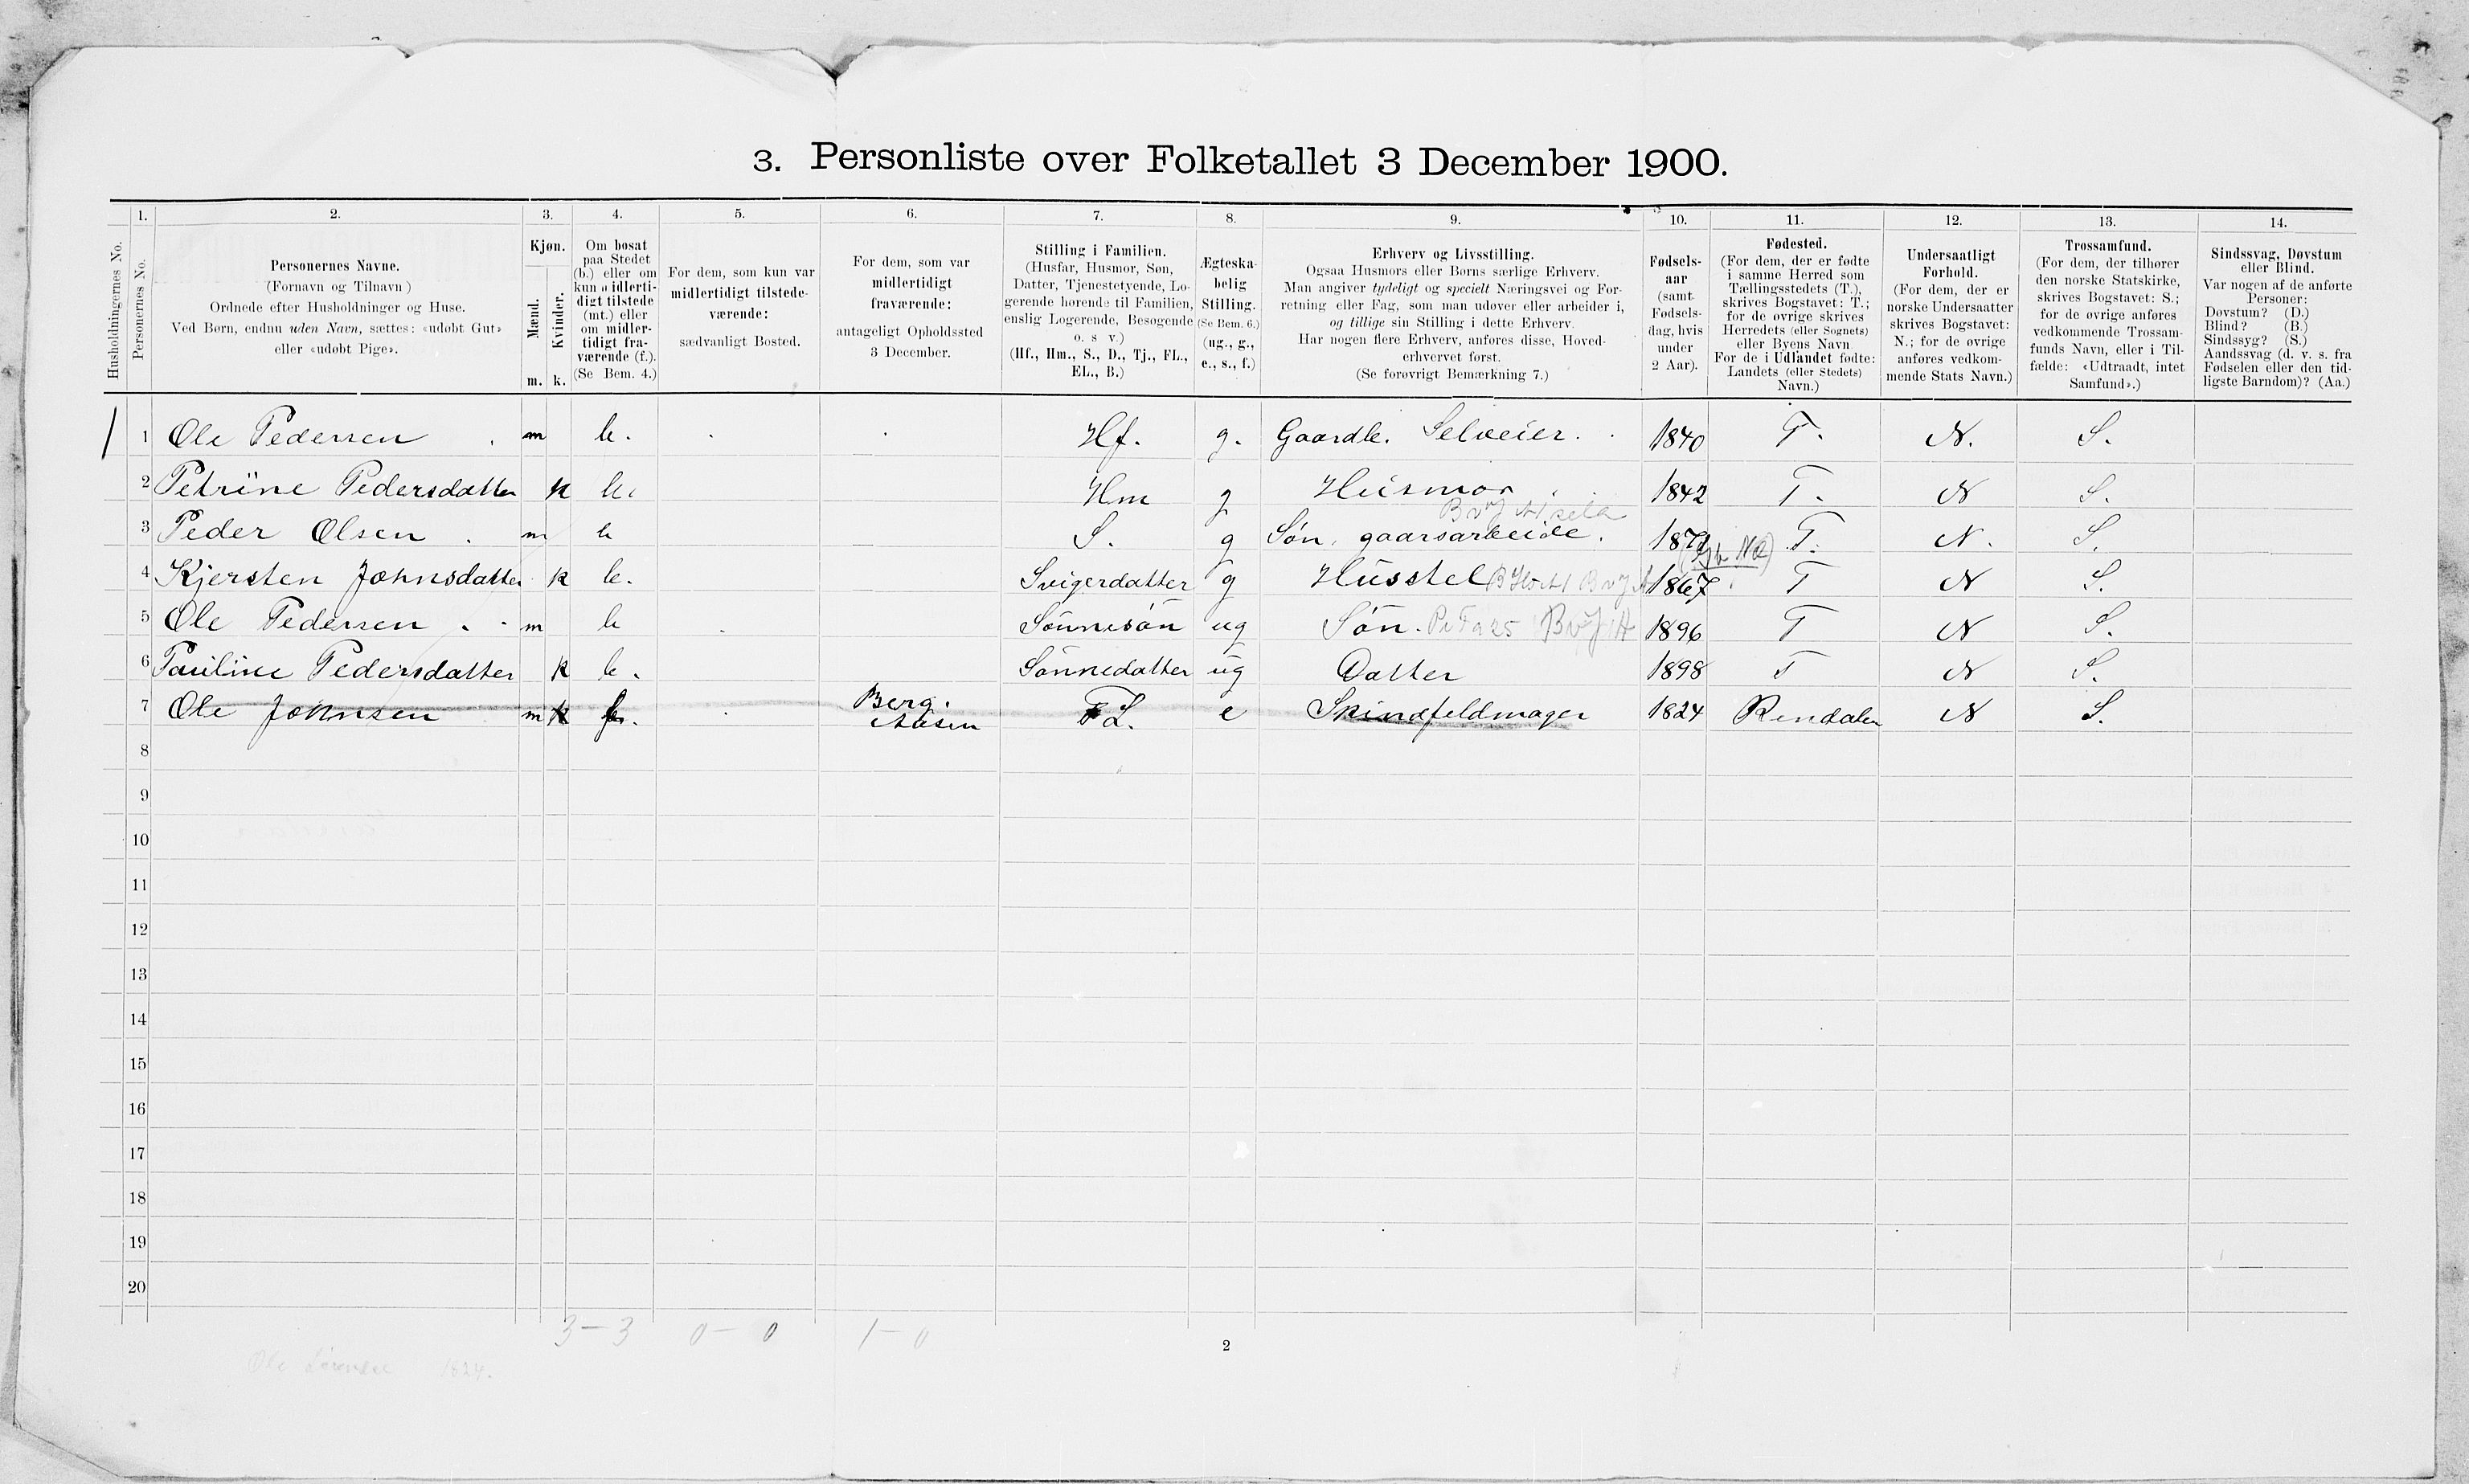 3. Personliste over Folketallet 3 December 1900.
1. 2. 3. 4. 5. 6. 7. 8. 9. 10. 11. 12. 13. 14.
Husholdningernes No.
Personernes No.
Personernes Navne.
(Fornavn og Tilnavn)
Ordnede efter Husholdninger og Huse.
Ved Børn, endnu uden Navn, sættes: «udøbt Gut»
eller «udøbt Pige».
Kjøn.
Mænd.
Kvinder.
m. k.
Om bosat
paa Stedet
(b.) eller om
kun midlerti-
digt tilstede
(mt.) eller
om midler-
tidigt fra-
værende (f.).
(Se Bem. 4.)
For dem, som kun var
midlertidigt tilstede-
værende:
sædvanligt Bosted.
For dem, som var
midlertidigt
fraværende:
antageligt Opholdssted
3 December.
Stilling i Familien.
(Husfar, Husmor, Søn,
Datter, Tjenestetyende, Lo-
gerende hørende til Familien,
enslig Logerende, Besøgende
o. s v.)
(Hf., Hm., S., D., Tj., FL.,
EL., B.)
Ægteska-
belig
Stilling.
(Se Bem. 6.)
(ug., g.,
e., s., f.)
Erhverv og Livsstilling.
Ogsaa Husmors eller Børns særlige Erhverv.
Man angiver tydeligt og specielt Næringsvei og For-
retning eller Fag, som man udøver eller arbeider i,
og tillige sin Stilling i dette Erhverv.
Har nogen flere Erhverv, anføres disse, Hoved-
erhvervet først.
(Se forøvrigt Bemærkning 7.)
Fødsels-
aar
(samt
Fødsels-
dag, hvis
under
2 Aar).
Fødested.
(For dem, der er fødte
i samme Herred som
Tællingsstedets (T.),
skrives Bogstavet: T.;
for de øvrige skrives
Herredets (eller Sognets)
eller Byens Navn
For de i Udlandet fødte:
Landets (eller Stedets)
Navn.)
Undersaatligt
Forhold.
(For dem, der er
norske Undersaatter
skrives Bogstavet:
N.; for de øvrige
anføres vedkom-
mende Stats Navn.)
Trossamfund.
(For dem, der tilhører
den norske Statskirke,
skrives Bogstavet: S.;
for de øvrige anføres
vedkommende Trossam-
funds Navn, eller i Til-
fælde: «Udtraadt, intet
Samfund».)
Sindssvag, Døvstum
eller Blind.
Var nogen af de anførte
Personer:
Døvstum? (D.)
Blind? (B.)
Sindssyg? (S.)
Aandssvag (d. v. s. fra
Fødselen eller den tid-
ligste Barndom)? (Aa.)
1 1 Ole Pedersen m b. Hf. g. Gaardb. Selveier. 1840 T. N. S.
2 Petrine Pedersdatter k b. Hm g Husmor 1842 T. N S.
3 Peder Olsen m b S. g Søn, gaarsarbeide. T. N. S.
4 Kjersten Johnsdatter k b. Svigerdatter g Husstel 1867 T N S.
5 Ole Pedersen m b Sønnesøn ug Søn. 1896 T N S.
6 Pauline Pedersdatter k b. Sønnedatter ug Datter 1898 T N S.
7 Ole Johnsen m k Berg. Aasen FL. e Skindfeldmager 1824 Rendalen N S.
8
9
10
11
12
13
14
15
16
17
18
19
20
3 — 3 0 — 0 1 — 0
2
Ole 1824.